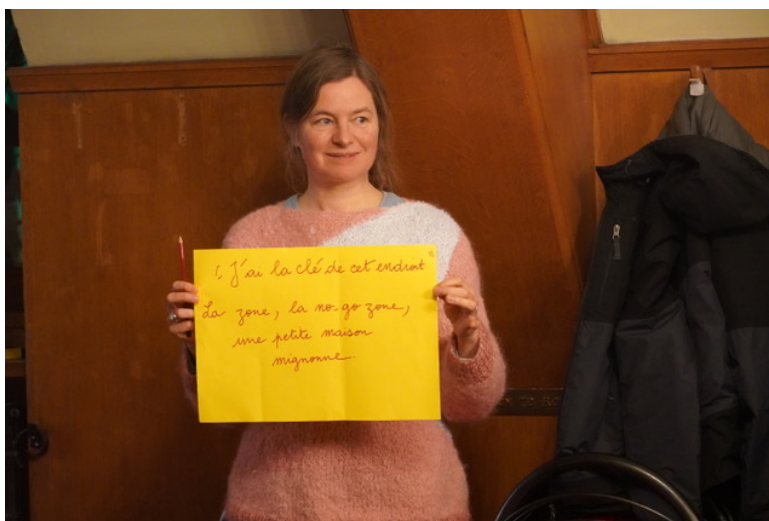 1. J'ai la clé de cet endroit
La zone, la no-go zone,
une petite maison
mignonne.